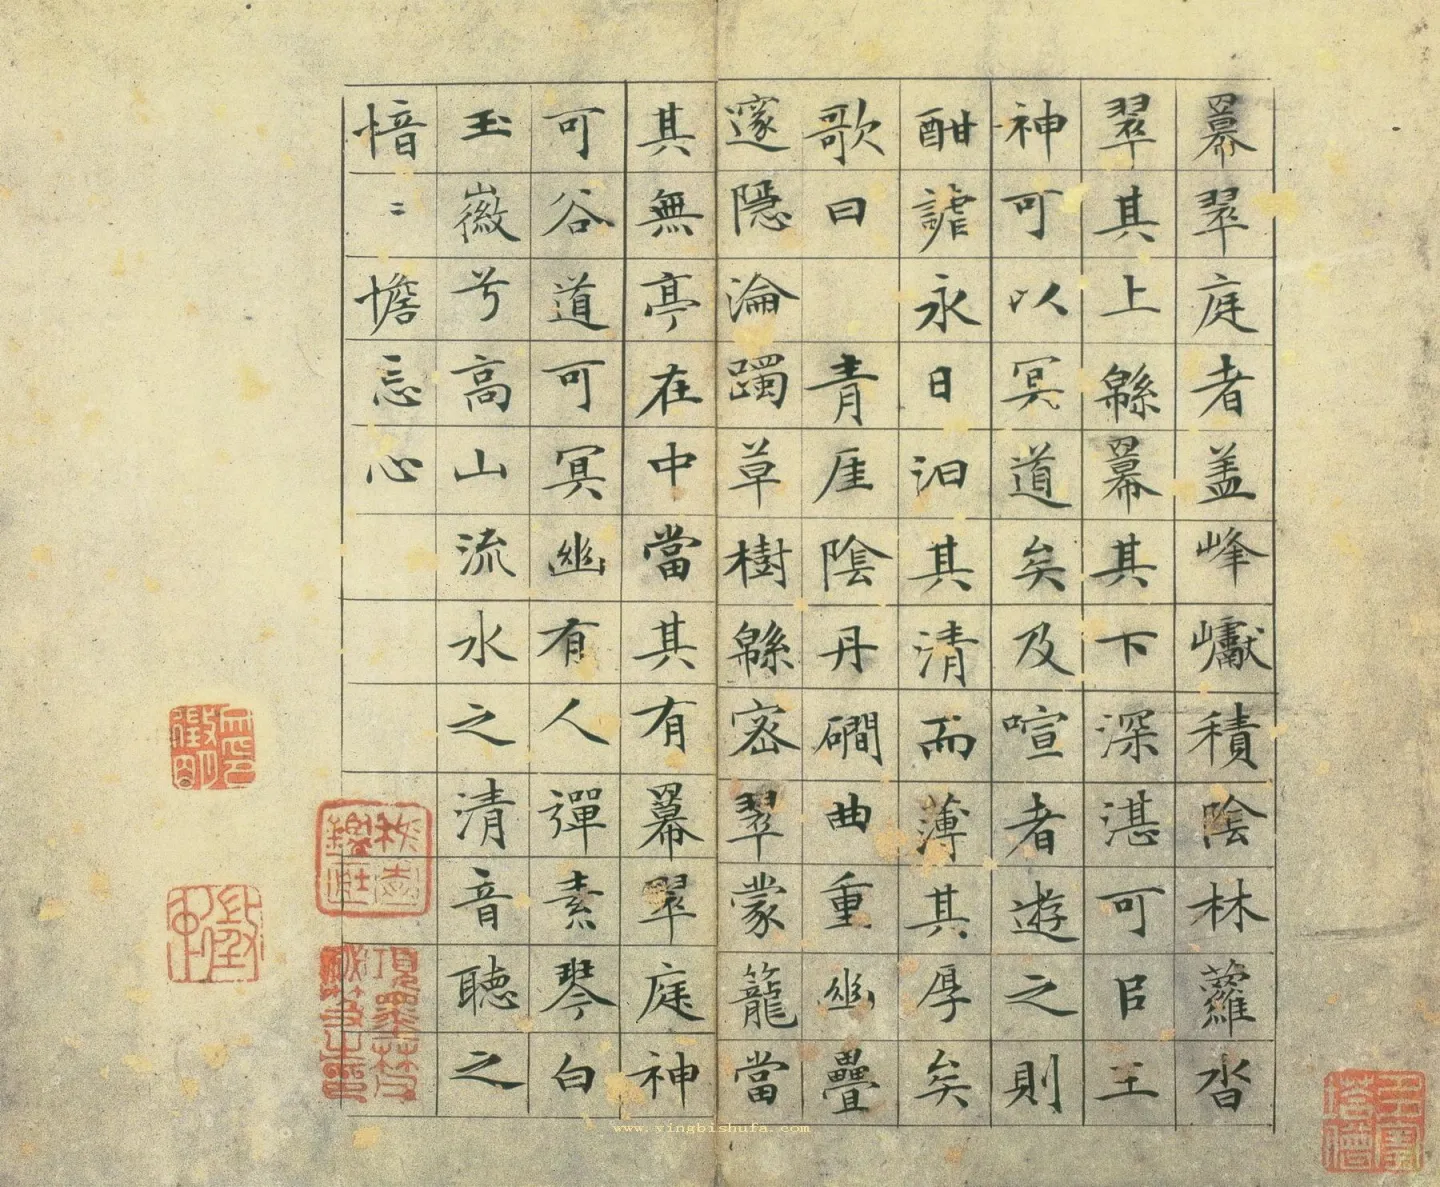 羃翠庭者盖峰巘積陰林蘿沓
翠其上緜羃其下深湛可臣王
神可以冥道矣及喧者遊之則
酣謔永日汩其清而薄其厚矣
歌曰　青厓陰丹磵曲重幽疊
邃隱淪躅草樹緜密翠蒙籠當
其無亭在中當其有羃翠庭神
可谷道可冥幽有人彈素琴白
玉徽兮高山流水之清音聽之
愔〻憺忘心
www.yingbishufa.com